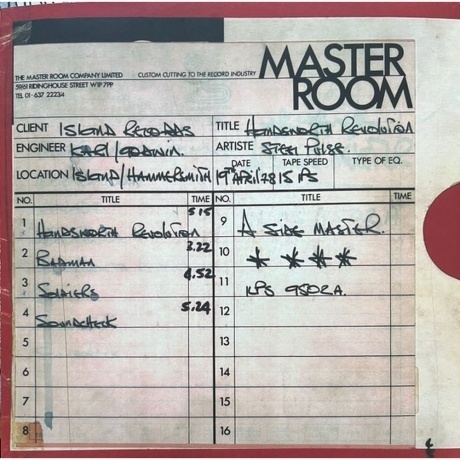 MASTER
ROOM
THE MASTER ROOM COMPANY LIMITED CUSTOM CUTTING TO THE RECORD INDUSTRY
59/61 RIDINGHOUSE STREET W1P 7PP
TEL 01-637 2223/4
CLIENT ISLAND RECORDS TITLE HANDSWORTH REVOLUTION
ENGINEER KARL/GODWIN. ARTISTE STEEL PULSE.
LOCATION ISLAND/HAMMERSMITH DATE 19TH APRIL 78 TAPE SPEED 15 IPS TYPE OF EQ.
NO. TITLE TIME NO. TITLE TIME
1 HANDSWORTH REVOLUTION 5.15 9 A SIDE MASTER.
2 BADMAN 3.22 10 * * * *
3 SOLDIERS 4.52 11 ILPS 9502A.
4 SOUNDCHECK 5.24 12
5 13
6 14
7 15
8 16